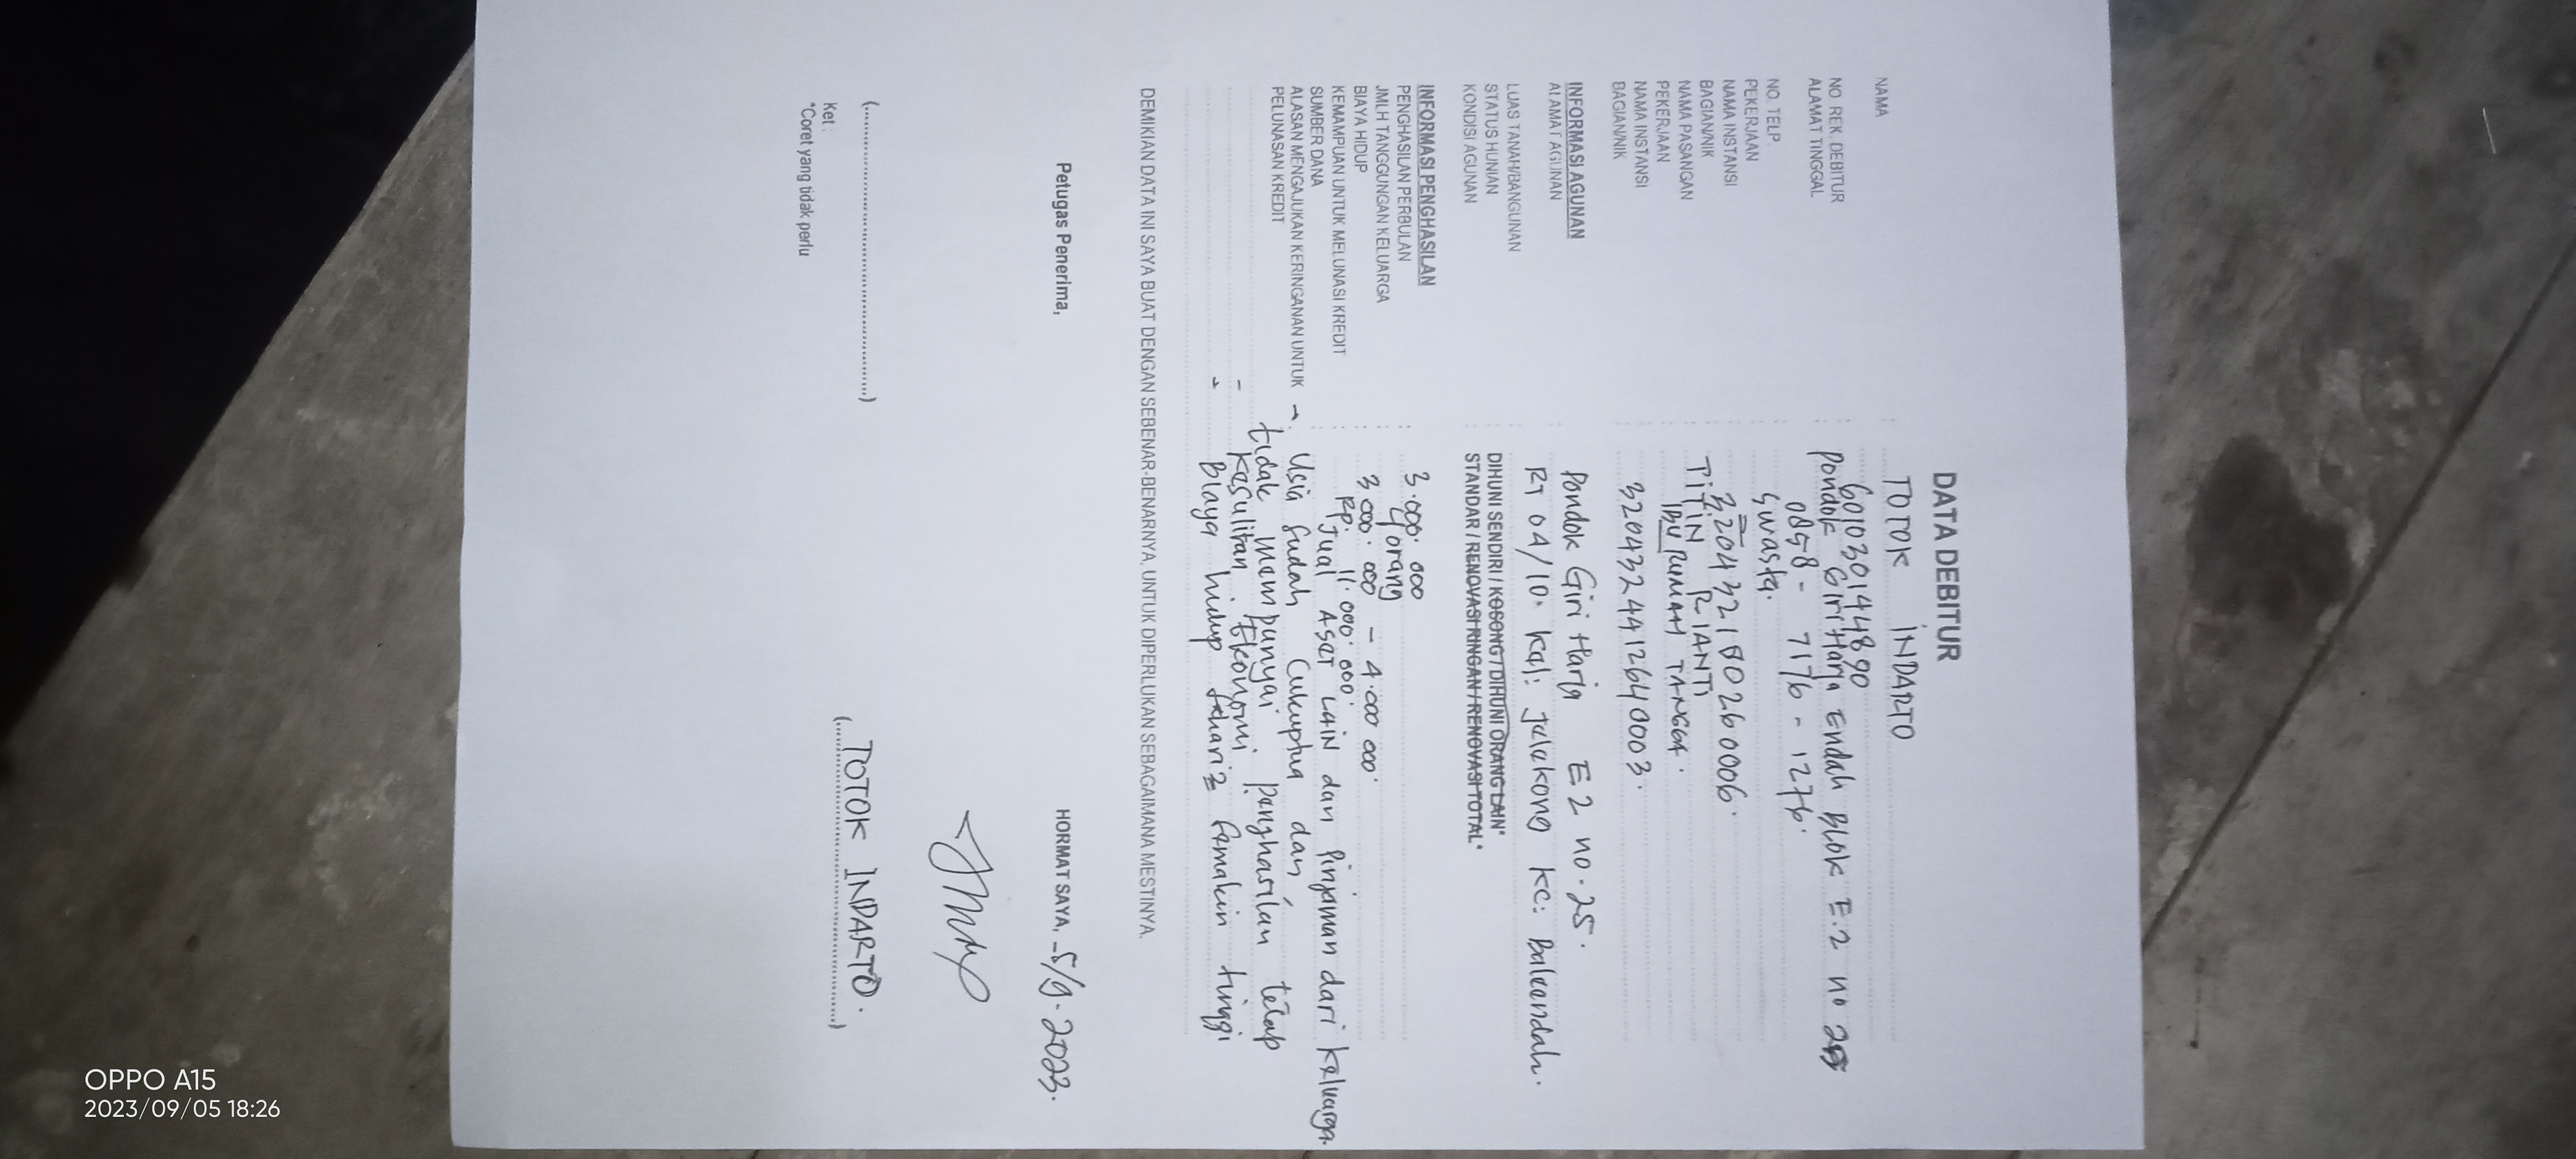 DATA DEBITUR
NAMA : TOTOK INDARTO
NO REK. DEBITUR : 601030144890
ALAMAT TINGGAL : Pondok Giri Harja Endah Blok E.2 no 25
NO. TELP : 0858 - 7176 - 1276.
PEKERJAAN : Swasta.
NAMA INSTANSI : =
BAGIAN/NIK : 320432180260006.
NAMA PASANGAN : TiTiN RIANTI
PEKERJAAN : IBU RUMAH TANGGA.
NAMA INSTANSI :
BAGIAN/NIK : 3204324412640003.
INFORMASI AGUNAN
ALAMAT AGUNAN : Pondok Giri Harja E2 no. 25.
RT 04/10. Kel: Jelekong KC: Baleendah.
LUAS TANAH/BANGUNAN :
STATUS HUNIAN : DIHUNI SENDIRI / KOSONG / DIHUNI ORANG LAIN*
KONDISI AGUNAN : STANDAR / RENOVASI RINGAN / RENOVASI TOTAL*
INFORMASI PENGHASILAN
PENGHASILAN PERBULAN : 3.000.000
JMLH TANGGUNGAN KELUARGA : 4 orang
BIAYA HIDUP : 3.000.000 - 4.000.000.
KEMAMPUAN UNTUK MELUNASI KREDIT : Rp. 11.000.000.
SUMBER DANA : Jual Aset LAiN dan Pinjaman dari keluarga.
ALASAN MENGAJUKAN KERINGANAN UNTUK - Usia sudah cukup tua dan
PELUNASAN KREDIT tidak mempunyai penghasilan tetap
- Kesulitan Ekonomi.
- Biaya hidup sehari2 semakin tinggi
DEMIKIAN DATA INI SAYA BUAT DENGAN SEBENAR-BENARNYA, UNTUK DIPERLUKAN SEBAGAIMANA MESTINYA.
Petugas Penerima, HORMAT SAYA, 5/9-2023.
(....................) (TOTOK INDARTO.)
Ket :
*Coret yang tidak perlu
OPPO A15
2023/09/05 18:26